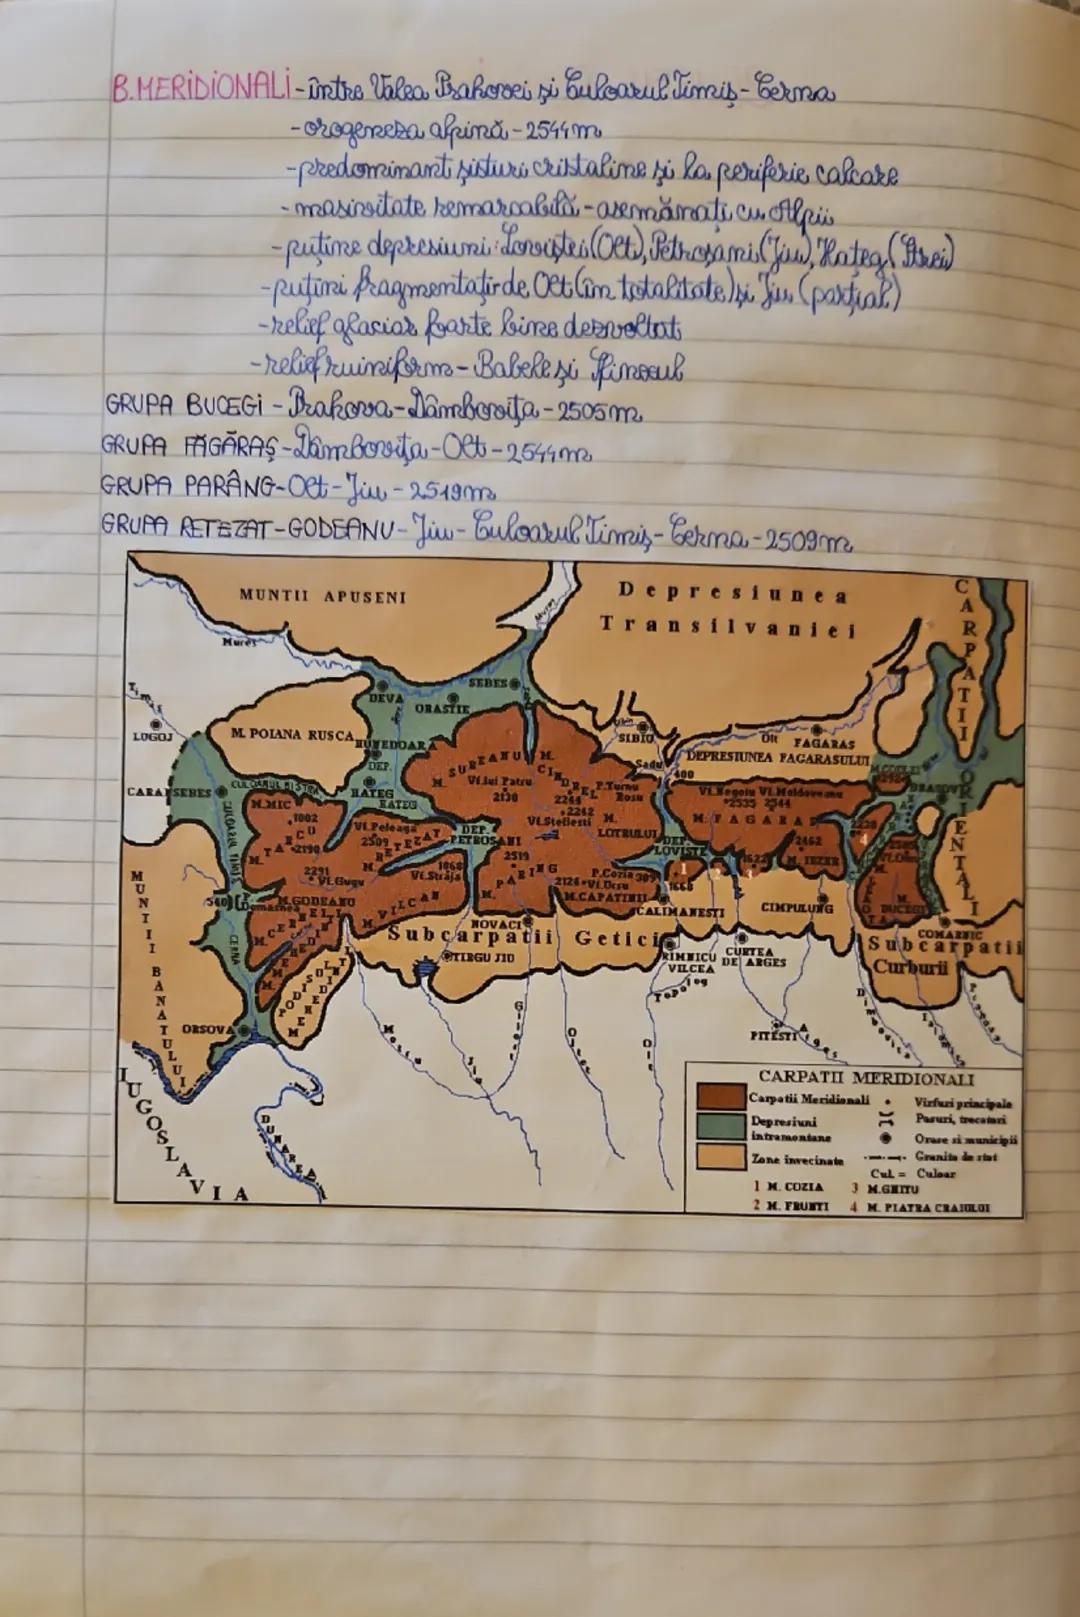 B.MERIDIONALI - între Valea Prahovei și Culoarul Timiș - Cerna
- orogeneza alpină - 2544m
- predominant șisturi cristaline și la periferie calcare
- masivitate remarcabilă - asemănați cu Alpii
- puține depresiuni: Loviștei (Olt), Petroșani (Jiu), Hațeg (Strei)
- puțini fragmentați de Olt (în totalitate) și Jiu (parțial)
- relief glaciar foarte bine dezvoltat
- relief ruiniform - Babele și Sfinxul
GRUPA BUCEGI - Prahova - Dâmbovița - 2505m
GRUPA FĂGĂRAȘ - Dâmbovița - Olt - 2544m
GRUPA PARÂNG - Olt - Jiu - 2519m
GRUPA RETEZAT - GODEANU - Jiu - Culoarul Timiș - Cerna - 2509m
MUNTII APUSENI
Depresiunea
Transilvaniei
CARPATII ORIENTALI
Mures
Mures
Timis
LUGOJ
DEVA
SEBES
ORASTIE
M. POIANA RUSCA
HUNEDOARA
DEP.
HATEG
HATEG
SIBIU
Sadu
400
Olt
FAGARAS
DEPRESIUNEA FAGARASULUI
M.CODLEI
BRASOV
CARANSEBES
CULOARUL BISTRA
CULOARUL TIMIS
M.MIC
1802
M. TARCU
2190
2291
Vf.Gugu
M.GODEANU
540
Domasnea
CERNA
M. CERNEI
M. MEHEDINTI
PODISUL MEHEDINTI
Vf.Peleaga
2509
M. RETEZAT
DEP.
PETROSANI
1868
Vf.Straja
M. VILCAN
M. SUREANU
Vf.lui Patru
2130
M. CINDREL
2244
2242
Vf.Steflesti
P.Turnu
Rosu
M.
LOTRULUI
2519
M. PARING
2124
Vf.Ursu
M.CAPATINII
P.Cozia 309
DEP.
LOVISTE
1
1668
2
3
1622
Vf.Negoiu
2535
Vf.Moldoveanu
2544
M. FAGARAS
2462
M. IEZER
2238
4
2505
Vf.Omu
M. BUCEGI
COMARNIC
NOVACI
Subcarpatii Getici
TIRGU JIU
CALIMANESTI
RIMNICU
VILCEA
CURTEA
DE ARGES
CIMPULUNG
Subcarpatii
Curburii
MUNTII BANATULUI
ORSOVA
Motru
Jiu
Gilort
Oltet
Olt
Topolog
PITESTI
Arges
Dimbovita
Ialomita
Prahova
IUGOSLAVIA
DUNAREA
CARPATII MERIDIONALI
Carpatii Meridionali
Virfuri principale
Depresiuni
intramontane
Pasuri, trecatori
Orase si municipii
Zone invecinate
Granita de stat
Cul. = Culoar
1 M. COZIA
3 M.GHITU
2 M. FRUNTI
4 M. PIATRA CRAIULUI